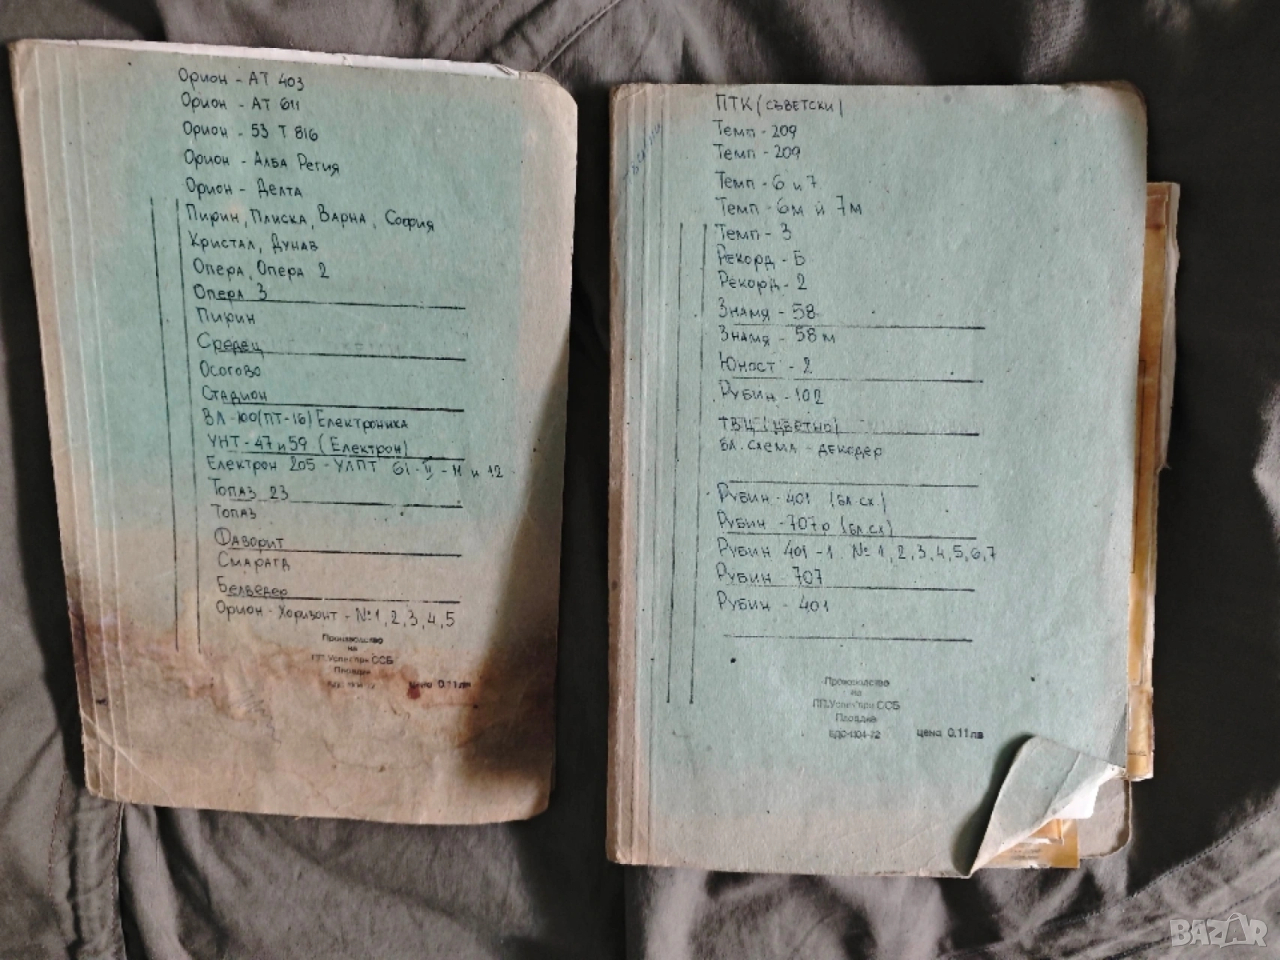 Орион - АТ 403
Орион - АТ 611
Орион - 53 Т 816
Орион - Алба Регия
Орион - Делта
Пирин, Плиска, Варна, София
Кристал, Дунав
Опера, Опера 2
Опера 3
Пирин
Средец
Осогово
Стадион
ВЛ-100 (ПТ-16) Електроника
УНТ-47 и 59 (Електрон)
Електрон 205 - УЛПТ 61-II-11 и 12
Топаз 23
Топаз
Фаворит
Смарагд
Белведер
Орион - Хоризонт - №1,2,3,4,5
Производство
на
ПП.Успег при ССБ
Пловдив
цена 0.11 лв
ПТК (съветски)
Темп - 209
Темп - 209
Темп - 6 и 7
Темп - 6м и 7м
Темп - 3
Рекорд - Б
Рекорд - 2
Знамя - 58
Знамя - 58 м
Юност - 2
Рубин - 102
ТВЦ (цветно)
бл. схема - декодер
Рубин - 401 (бл.сх.)
Рубин - 707р (бл.сх)
Рубин 401-1 № 1,2,3,4,5,6,7
Рубин - 707
Рубин - 401
Производство
на
ПП.Успег при ССБ
Пловдив
БДС-1104-72 цена 0.11 лв
BAZAR